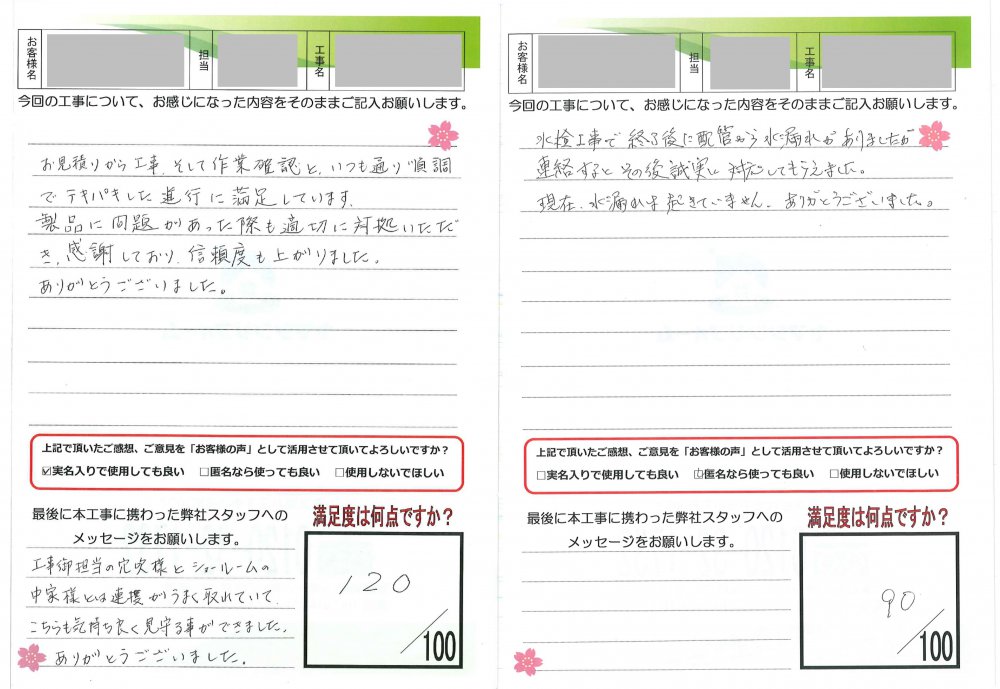 お客様名
担当
工事名
今回の工事について、お感じになった内容をそのままご記入お願いします。
お見積りから工事、そして作業確認と、いつも通り順調
でテキパキした進行に満足しています。
製品に問題があった際も適切に対処いただ
き、感謝しており、信頼度も上がりました。
ありがとうございました。
上記で頂いたご感想、ご意見を「お客様の声」として活用させて頂いてよろしいですか?
☑実名入りで使用しても良い □匿名なら使っても良い □使用しないでほしい
最後に本工事に携わった弊社スタッフへの
メッセージをお願いします。
工事御担当の穴吹様とショールームの
中家様とは連携がうまく取れていて
こちらも気持ち良く見守る事ができました。
ありがとうございました。
満足度は何点ですか?
120
/100
お客様名
担当
工事名
今回の工事について、お感じになった内容をそのままご記入お願いします。
水栓工事で終了後に配管から水漏れがありましたが
連絡するとその後誠実に対応してもらえました。
現在、水漏れは起きていません。ありがとうございました。
上記で頂いたご感想、ご意見を「お客様の声」として活用させて頂いてよろしいですか?
□実名入りで使用しても良い ☑匿名なら使っても良い □使用しないでほしい
最後に本工事に携わった弊社スタッフへの
メッセージをお願いします。
満足度は何点ですか?
90
/100